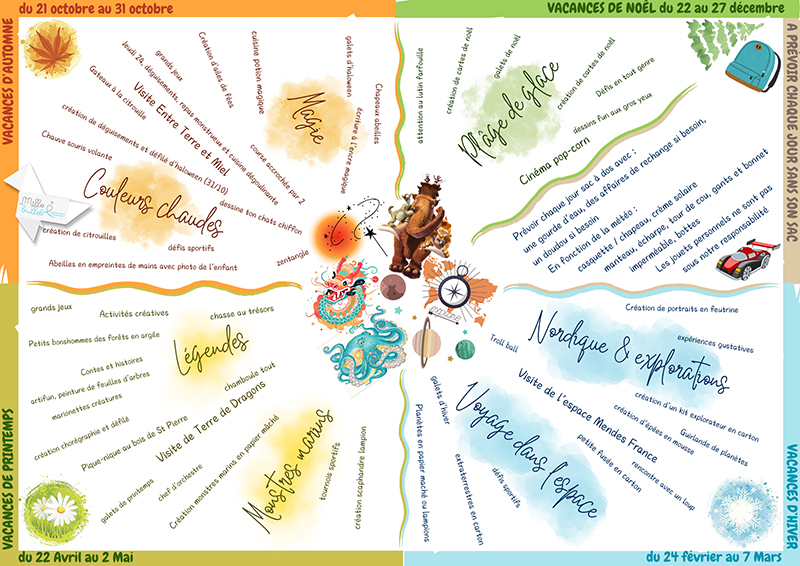 du 21 octobre au 31 octobre
VACANCES D'AUTOMNE
Gateaux à la citrouille
Jeudi 24, déguisements, repas monstrueux et cuisine dégoulinante
grands jeux
Visite Entre Terre et Miel
Création d'ailes de fées
cuisine potion magique
Magie
galets d'halloween
Chapeaux abeilles
écriture à l'encre magique
course accrochée par 2
création de déguisements et défilé d'haloween (31/10)
Chauve souris volante
Couleurs chaudes
dessine ton chats chiffon
création de citrouilles
défis sportifs
zentangle
Abeilles en empreintes de mains avec photo de l'enfant
VACANCES DE NOËL du 22 au 27 décembre
A PREVOIR CHAQUE JOUR SANS SON SAC
attention au lutin farfouille
création de cartes de noël
galets de noël
Plâge de glace
création de cartes de noël
Défis en tout genre
dessins fun aux gros yeux
Cinéma pop-corn
Prévoir chaque jour sac à dos avec :
une gourde d'eau, des affaires de rechange si besoin,
un doudou si besoin
En fonction de la météo :
casquette / chapeau, crème solaire
manteau, écharpe, tour de cou, gants et bonnet
imperméable, bottes
Les jouets personnels ne sont pas
sous notre responsabilité
grands jeux
Activités créatives
chasse au trésors
Petits bonshommes des forêts en argile
Légendes
Contes et histoires
artifun, peinture de feuilles d'arbres
marionettes créatures
chamboule tout
création chorégraphie et défilé
Pique-nique au bois de St Pierre
Visite de Terre de Dragons
galets de printemps
chef d'orchestre
Création monstres marins en papier mâché
Monstres marins
tournois sportifs
création scaphandre lampion
VACANCES DE PRINTEMPS
du 22 Avril au 2 Mai
Création de portraits en feutrine
Troll ball
Nordique & explorations
expériences gustatives
création d'un kit explorateur en carton
Visite de l'espace Mendes France
création d'épées en mousse
Guirlande de planètes
galets d'hiver
Voyage dans l'espace
petite fusée en carton
rencontre avec un loup
Planètes en papier maché ou lampions
extraterrestres en carton
défis sportifs
VACANCES D'HIVER
du 24 février au 7 Mars